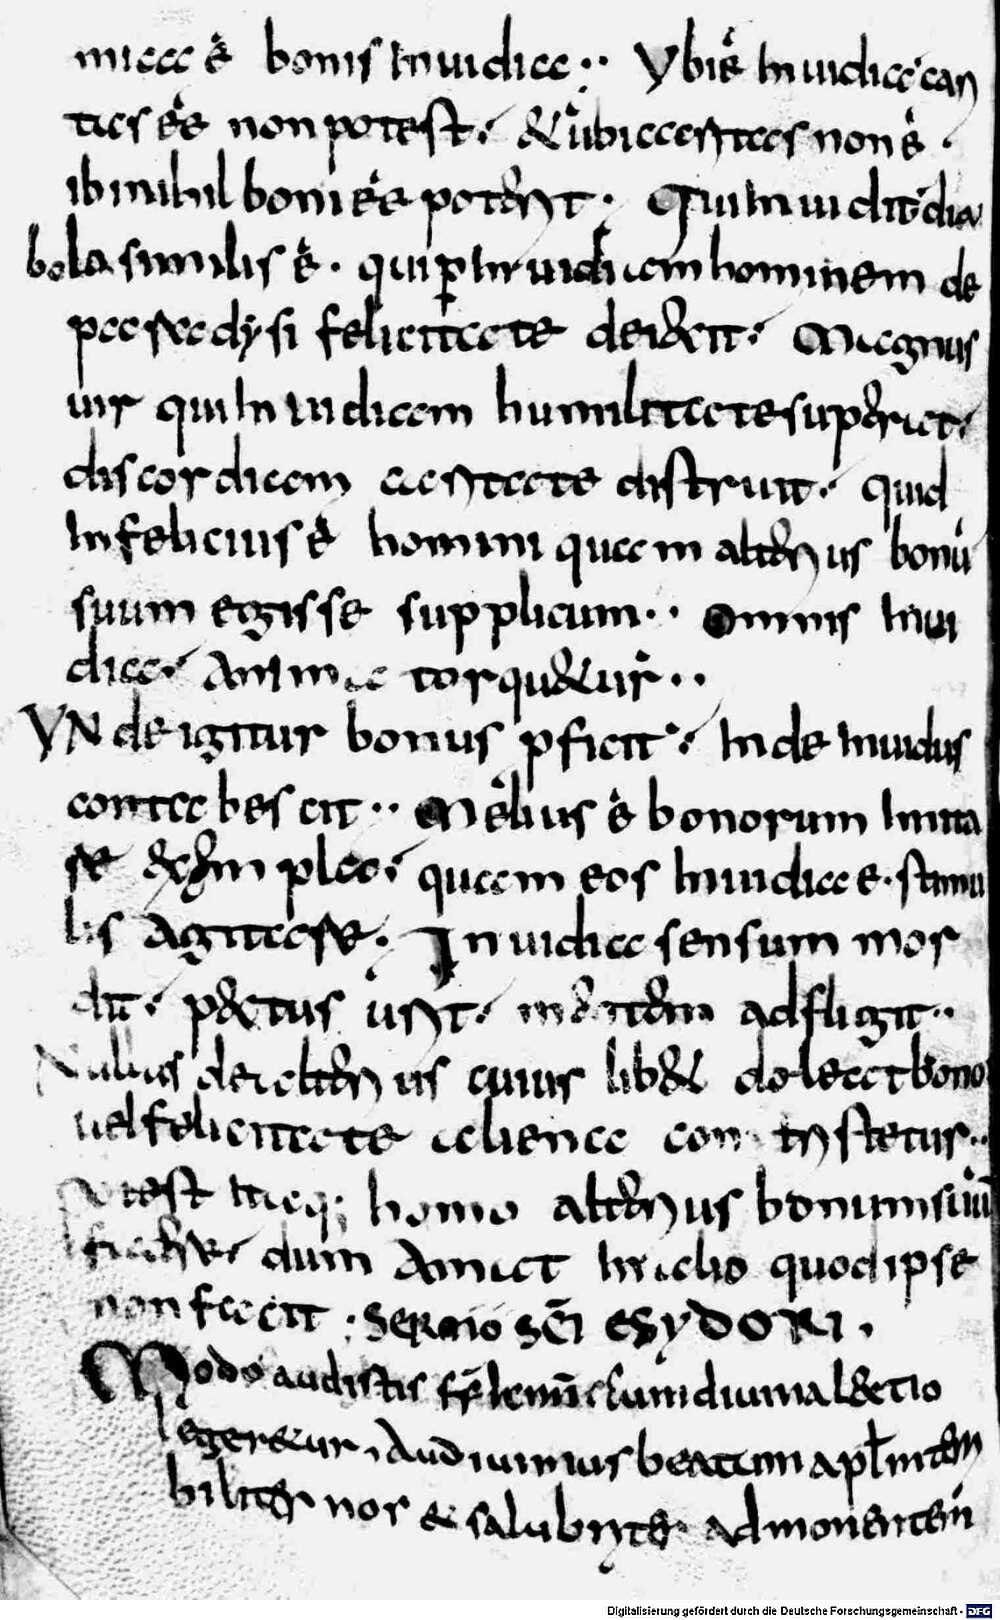 mica ē bonis inuidia·· Ubi ē inuidia can
tas eē non potest· & ubi cantas non ē·
ibi nihil boni eē poterit· Qui inuidit dia
bolo similis ē· qui ꝑ inuidiam hominem de
paradysi felicitate deiecit· Magnus
uir qui inuidiam humilitate superat·
discordiam caritate distruit· quid
infelicius ē homini quam alterius bonū
suum egisse supplicum·· Omnis inui
dia· Anima torquetur··
UNde igitur bonus pficit· inde inuidus
contabescit·· Melius ē bonorum imita
re exempla· quam eos inuidiae· stimu
lis agitare· Inuidia sensum mor
dit· pectus urit· mentem adfligit··
Nullus de alterius cuius libet doleat bono
uel felicitate aliena contristetur··
Potest itaq; homo alterius bonum suū
facere· dum amat in alio quod ipse
non facit· sermo sc̄i esydori·
Modo audistis fr̄ cum diuina lectio
legeretur· Audiuimus beatum apl̄m
biliter nos & salubrite admonentem